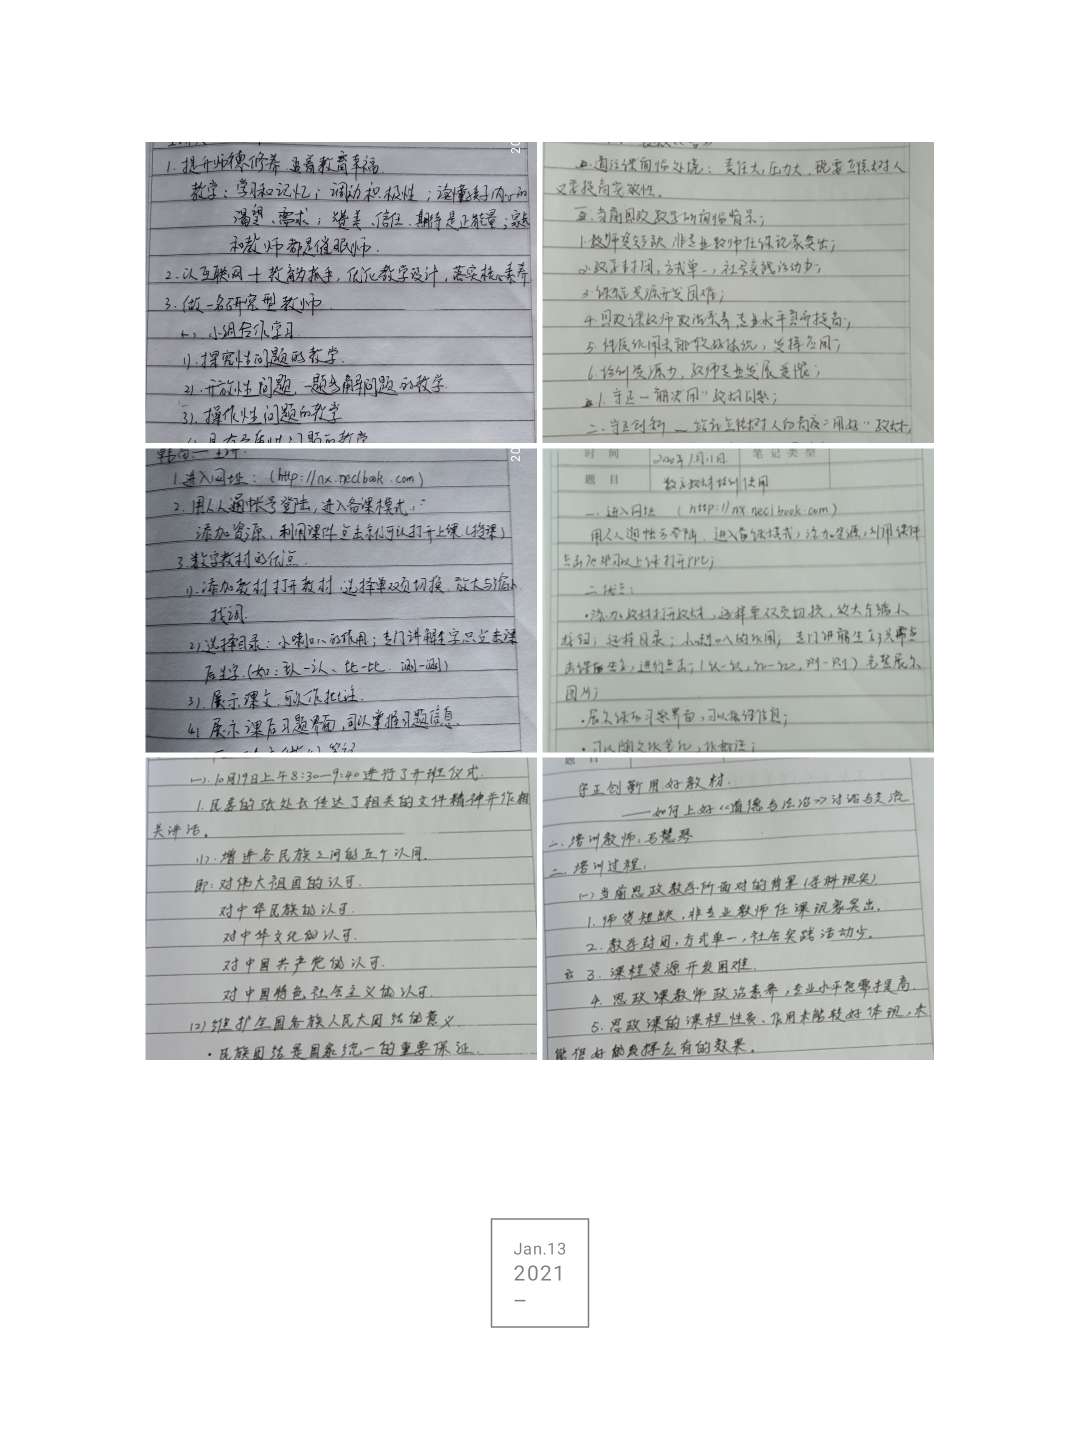 1.提升师德修养 追寻教育幸福
教学：学习和记忆；调动积极性；读懂孩子内心的
渴望、需求；赞美、信任、期待是正能量，家长
和教师都是催眠师.
2.以互联网+教育为抓手，优化教学设计，落实核心素养
3.做一名研究型教师
(一). 小组合作学习
1).探究性问题的教学.
2).开放性问题，一题多解问题的教学
3).操作性问题的教学
道法课面临处境：责任大，压力大，既要立德树人
又要提高实效性.
当前思政教学所面临背景；
1.教师资短缺，非专业教师任课现象突出；
2.教学封闭，方式单一，社会实践活动少；
3.课程资源开发困难；
4.思政课教师政治素养专业水平需所提高；
1.守正—解决用"教材问题；
1.进入网址：(http://nx.neclbook.com)
2.用人人通帐号登陆，进入备课模式.
添加资源，利用课件点击就可以打开上课(授课)
3.数字教材的优点.
1).添加教材打开教材 选择单双页切换，放大与缩小
找词.
2)选择目录：小喇叭的作用；专门讲解生字只点击课
后生字.(如：认一认、比一比.
3).展示课文，可以作批注.
4).展示课后习题界面，可以掌握习题信息.
时 间
笔 记 类 型
题 目
数字教材培训使用
一. 进入网址 (http://nx.neclbook.com)
用人人通帐号登陆，进入备课模式，添加资源，利用课件
点击就可以上课打开PPT；
二.优点：
·添加教材打开教材，选择单双页切换，放大与缩小
图片；
题 目
(一).10月19日上午8:30—9:40进行了开班仪式.
1.民委的张处长传达了相关的文件精神并作相
关讲话。
(1).增进各民族之间的五个认同.
即：对伟大祖国的认可.
对中华民族的认可.
对中华文化的认可.
对中国共产党的认可.
对中国特色社会主义的认可.
(2)维护全国各族人民大团结的意义.
·民族团结是国家统一的重要保证.
守正创新用好教材.
——如何上好《道德与法治》讨论与交流
一、培训教师：马慧琴
二、培训过程：
(一)当前思政教学所面对的背景(学科现实)
1.师资短缺，非专业教师任课现象突出.
2.教学封闭，方式单一，社会实践活动少.
3.课程资源开发困难.
4.思政课教师政治素养，专业水平急需提高.
5.思政课的课程性质、作用未能较好体现，未
能很好的发挥应有的效果。
Jan.13
2021